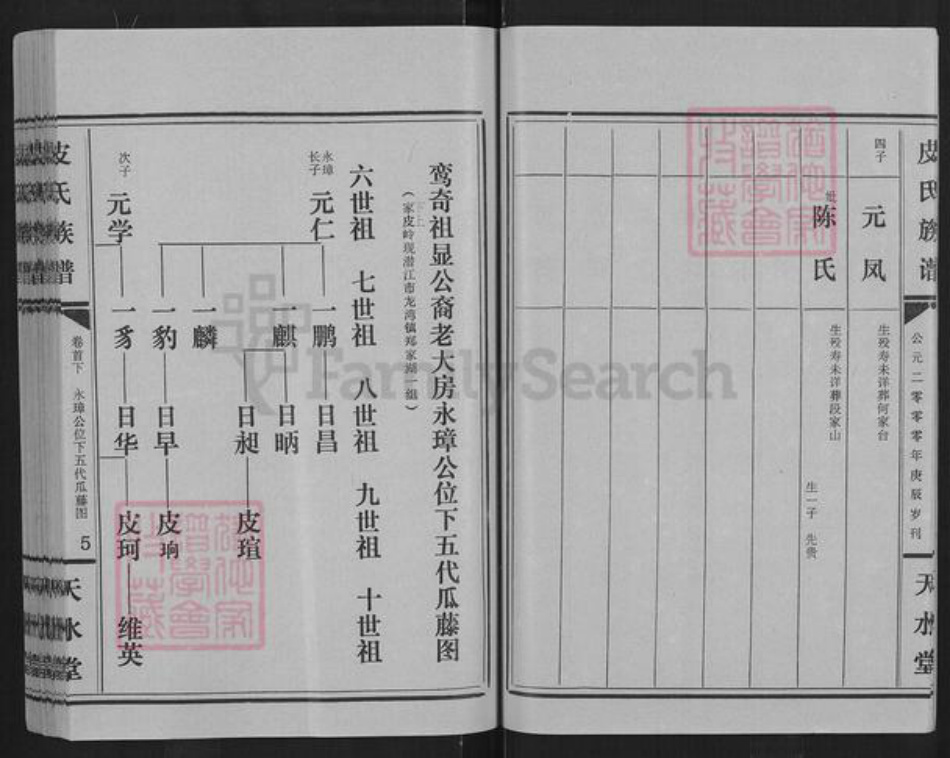 皮氏族谱
公元二零零零年庚辰岁刊
天水堂
四子
元凤
生殁寿未详葬何家台
妣
陈氏
生殁寿未详葬段家山
生一子 先贵
鸾奇祖显公裔老大房永璋公位下五代瓜藤图
（家皮岭现潜江市龙湾镇郑家湖一组）
六世祖 七世祖 八世祖 九世祖 十世祖
永璋
长子
元仁
一鹏 日昌
一麒 日昞
日昶 皮瑄
一麟
一豹 日早 皮珦
次子
元学
一豸 日华 皮珂 维英
皮氏族谱
卷首下 永璋公位下五代瓜藤图
5
天水堂
FamilySearch